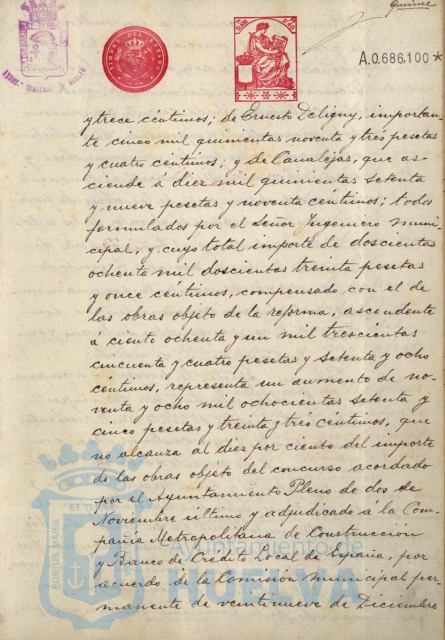 Quince
A.0.686.100 *
y trece céntimos; de Ernesto Deligny, importan-
te cinco mil quinientas noventa y tres pesetas
y cuatro céntimos; y de Canalejas, que as-
ciende a diez mil quinientas setenta
y nueve pesetas y noventa céntimos; todos
formulados por el Señor Ingeniero muni-
cipal, y cuyo total importe de doscientas
ochenta mil doscientas treinta pesetas
y once céntimos, compensado con el de
las obras objeto de la reforma, ascendente
á ciento ochenta y un mil trescientas
cincuenta y cuatro pesetas y setenta y ocho
céntimos, representa un aumento de no-
venta y ocho mil ochocientas setenta y
cinco pesetas y treinta y tres céntimos, que
no alcanza al diez por ciento del importe
de las obras objeto del concurso acordado
por el Ayuntamiento Pleno de dos de
Noviembre último y adjudicado a la Com-
pañía Metropolitana de Construcción
y Banco de Crédito Local de España, por
acuerdo de la Comisión municipal per-
manente de veintinueve de Diciembre
PORTUS MARIS
ET TERRAE
Ayuntamiento de
HUELVA